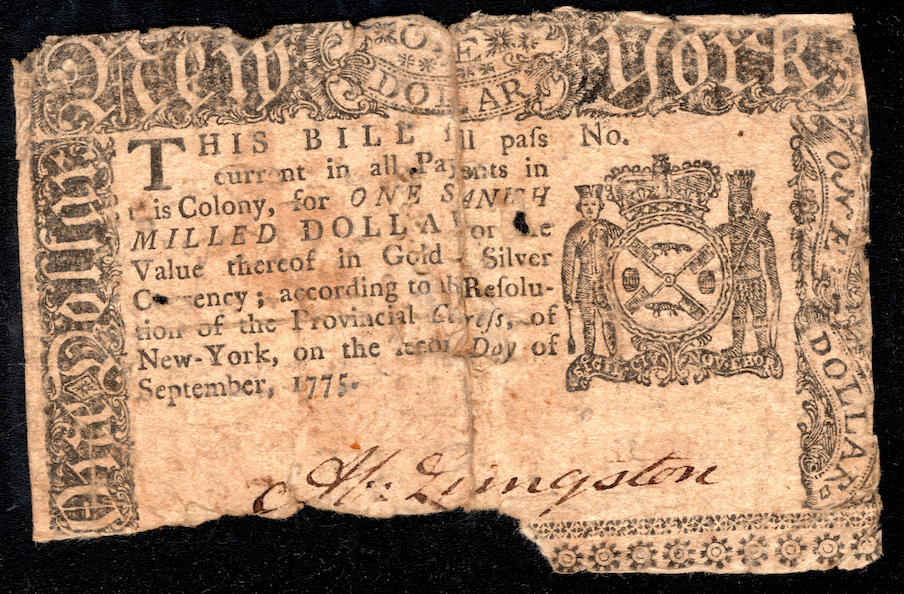 New York
ONE
DOLLAR
THIS BILL ſhall paſs
current in all Payments in
this Colony, for ONE SPANISH
MILLED DOLLAR, or the
Value thereof in Gold or Silver
Currency; according to the Reſolu-
tion of the Provincial Congreſs, of
New-York, on the ſecond Day of
September, 1775.
No.
One Dollar
ONE DOLLAR
Livingston